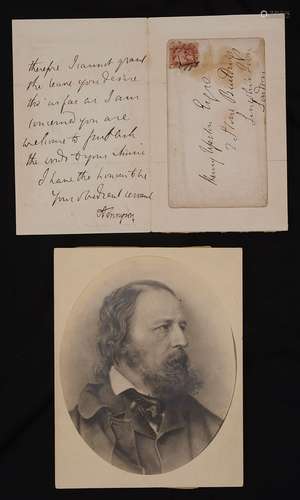 therefore I cannot grant
the leave you desire
tho' as far as I am
concerned you are
welcome to publish
the words to your Music
I have the honour to be
Your obedient servant
ATennyson
Henry Esqre
2 New Buildings
London